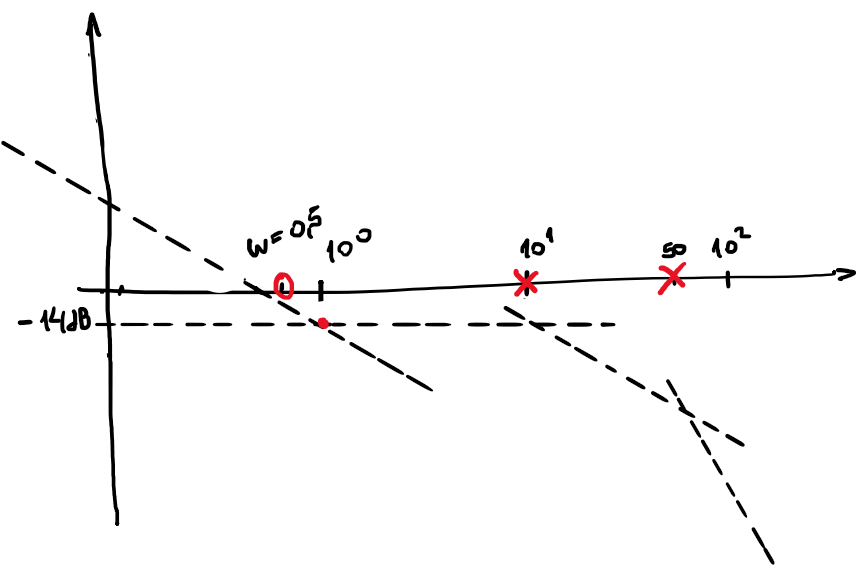 w=0,5
10⁰
10¹
50
10²
-14dB